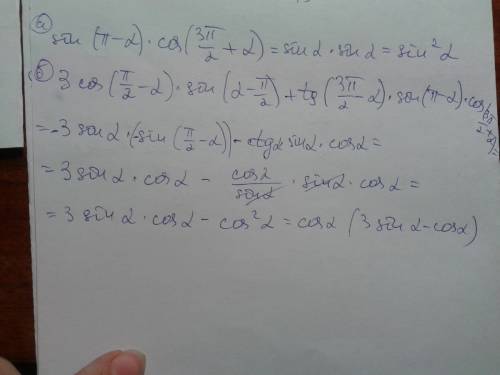 а) sin (π-α) · cos (3π/2 + α) = sin α · sin α = sin² α
б) 3 cos (π/2 - α) · sin (α - π/2) + tg (3π/2 - α) · sin (π-α) · cos (3π/2 + α) =
= -3 sin α · (-sin (π/2 - α)) - ctg α sin α · cos α =
= 3 sin α · cos α - cos α/sin α · sin α · cos α =
= 3 sin α · cos α - cos² α = cos α (3 sin α - cos α)